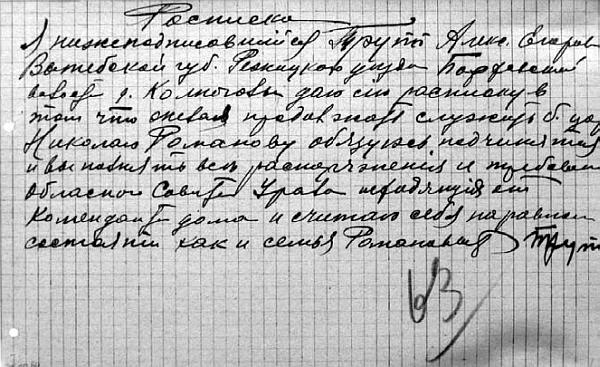 Расписка
Я нижеподписавшийся Трупп Алекс. Егоров
Витебской губ. Режицкаго уезда
волости д. даю сию расписку в
том что желая продолжать служить б. царю
Николаю Романову обязуюсь подчинятся
и выполнять все распоряжения и требован
обласного Совета Урала исходящия от
Коменданта дома и считаю себя на равном
состоянии как и семья Романовых Трупп